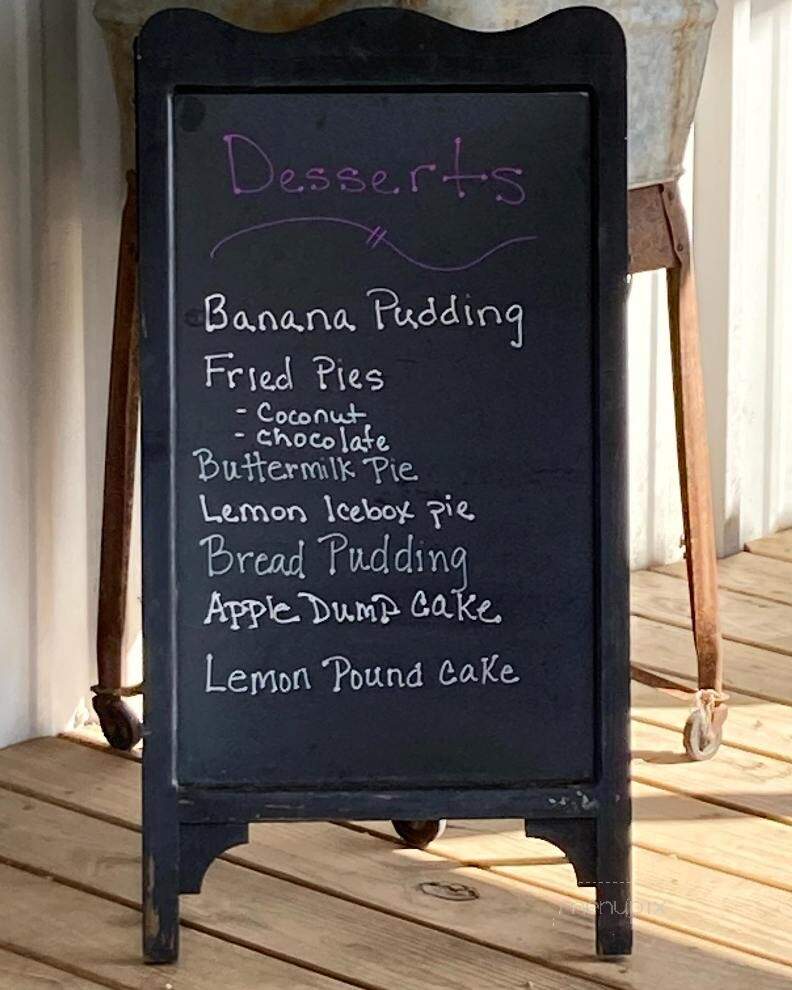 Desserts
Banana Pudding
Fried Pies
- Coconut
- chocolate
Buttermilk Pie
Lemon Icebox pie
Bread Pudding
Apple Dump Cake
Lemon Pound cake
menupix